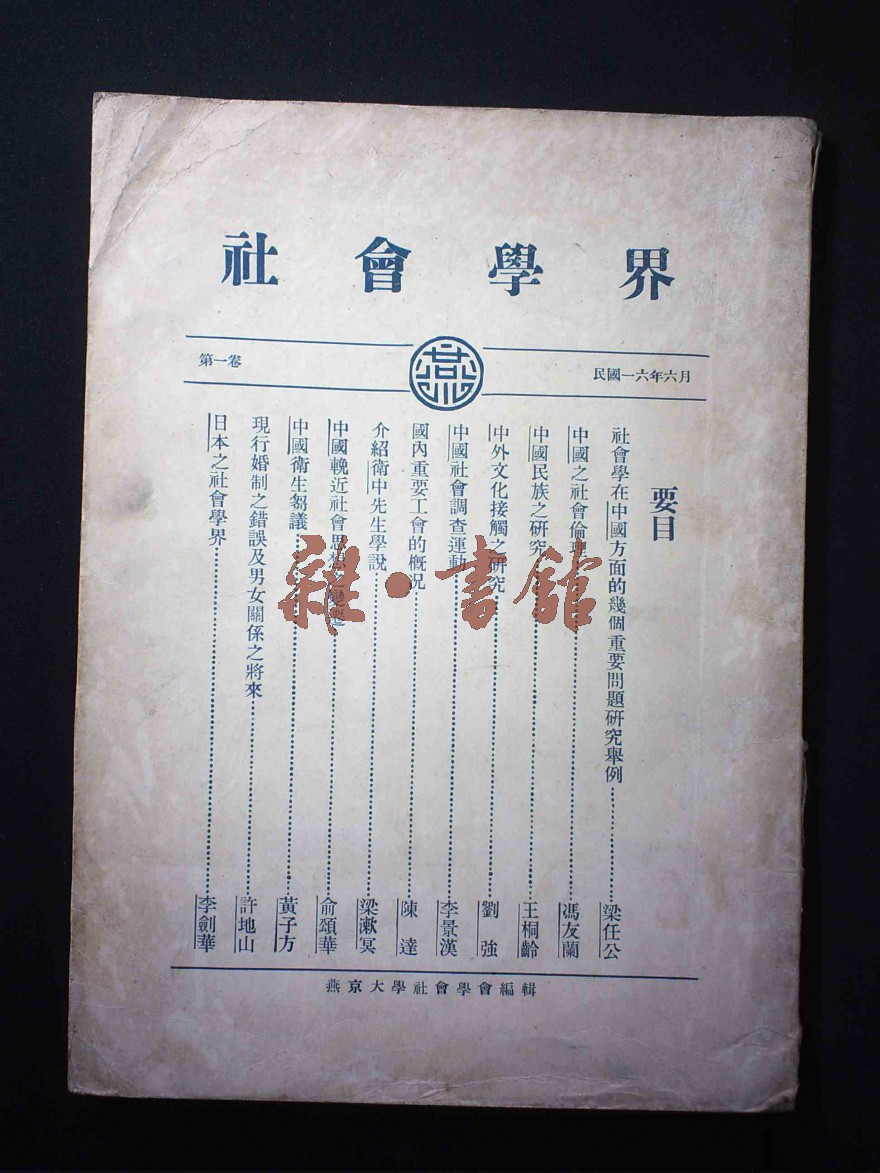 社會學界
第一卷
燕
民國一六年六月
要目
社會學在中國方面的幾個重要問題研究舉例……梁任公
中國之社會倫理……馮友蘭
中國民族之研究……王桐齡
中外文化接觸之研究……劉強
中國社會調查運動……李景漢
國內重要工會的概況……陳達
介紹衛中先生學說……梁漱冥
中國輓近社會思想之變遷……俞頌華
中國衛生芻議……黃子方
現行婚制之錯誤及男女關係之將來……許地山
日本之社會學界……李劍華
燕京大學社會學會編輯
雜·書館